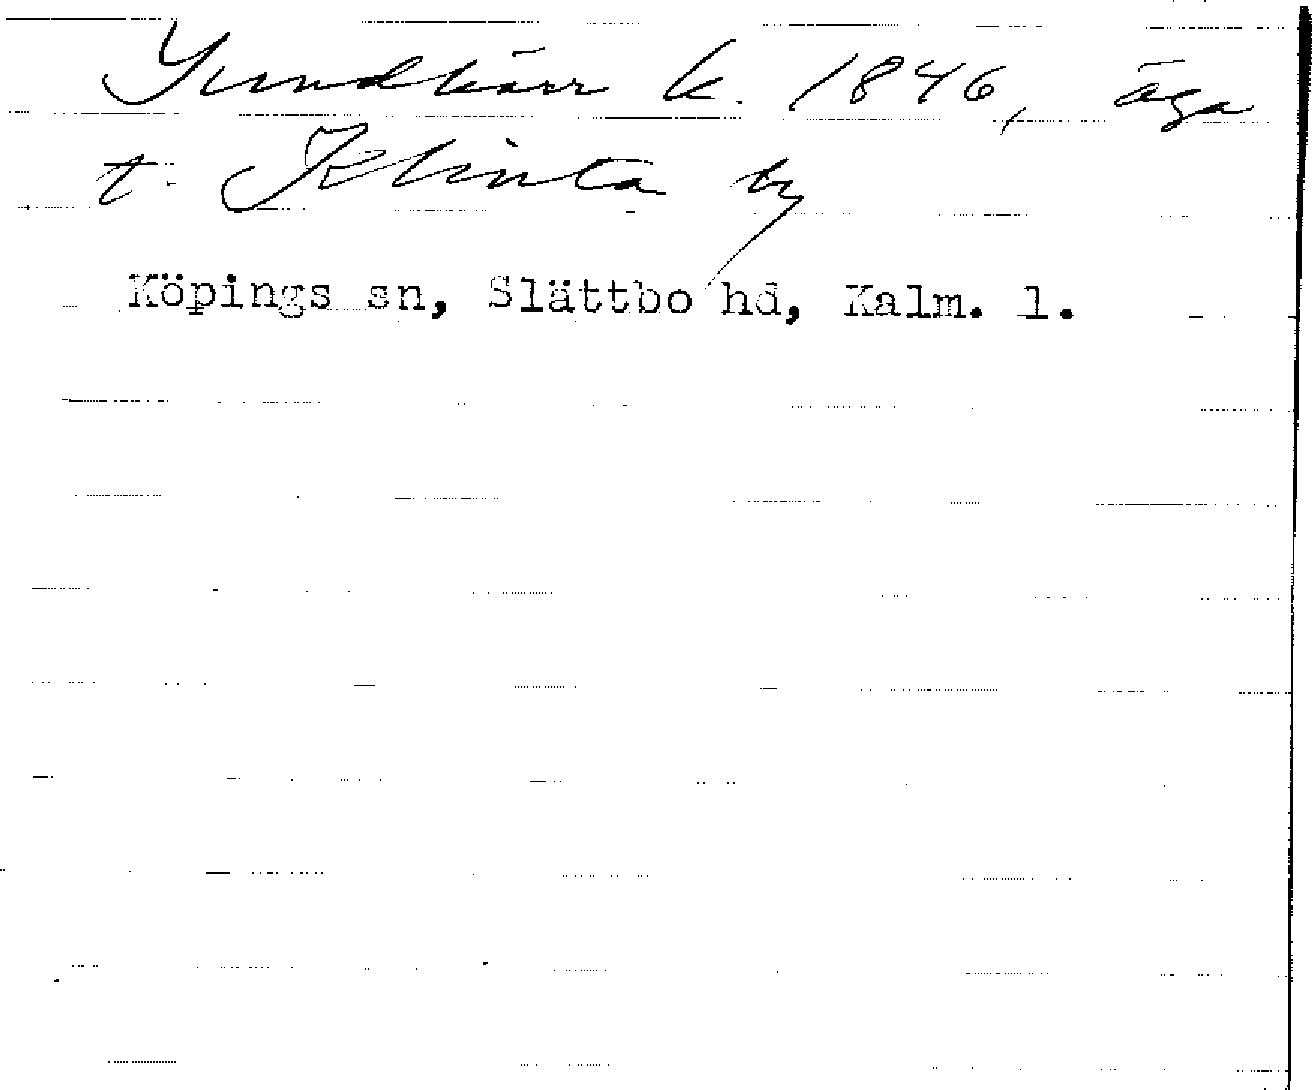 Gundkärr k. 1846, äga
t. Klinta by
Köpings sn, Slättbo hd, Kalm. l.